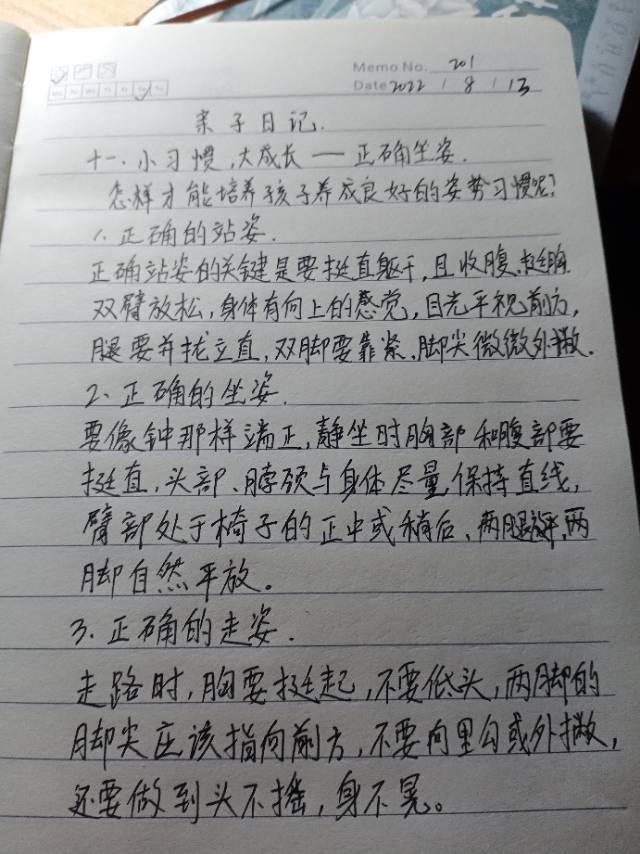 Memo No. 201
Date 2022 / 8 / 13
亲子日记.
十一.小习惯,大成长——正确坐姿.
怎样才能培养孩子养成良好的姿势习惯呢?
1.正确的站姿.
正确站姿的关键是要挺直躯干,且收腹.挺胸.
双臂放松,身体有向上的感觉,目光平视前方,
腿要并拢立直,双脚要靠紧.脚尖微微外撇.
2、正确的坐姿.
要像钟那样端正,静坐时胸部和腹部要
挺直,头部、脖颈与身体尽量保持直线,
臂部处于椅子的正中或稍后、两腿 两
脚自然平放。
3.正确的走姿.
走路时,胸要挺起,不要低头,两脚的
脚尖应该指向前方,不要向里勾或外撇,
还要做到头不摇,身不晃。